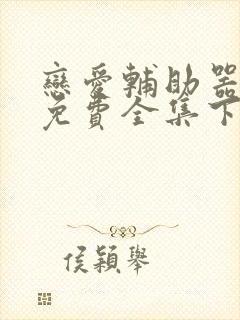 戀愛輔助器
免費全集下
侯穎舉